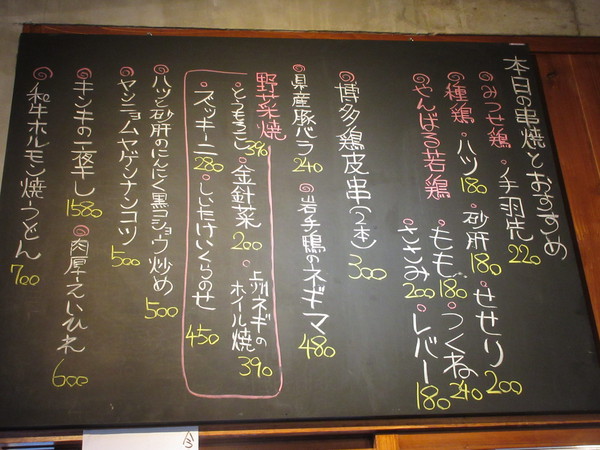 本日の串焼とおすすめ
みつせ鶏・手羽先 220
種鶏・ハツ 180 砂肝 180 せせり 200
やんばる若鶏 もも 180 つくね 240
ささみ 200 レバー 180
博多鶏皮串(2本) 300
県産豚バラ 240 岩手鴨のネギマ 480
野菜焼
とうもろこし 390 金針菜 200 上州ネギのホイル焼 390
ズッキーニ 280 しいたけいくらのせ 450
ハツと砂肝のにんにく黒コショウ炒め 500
ヤンニョムヤゲンナンコツ 500
キンキの一夜干し 1580 肉厚えいひれ 600
和牛ホルモン焼うどん 700